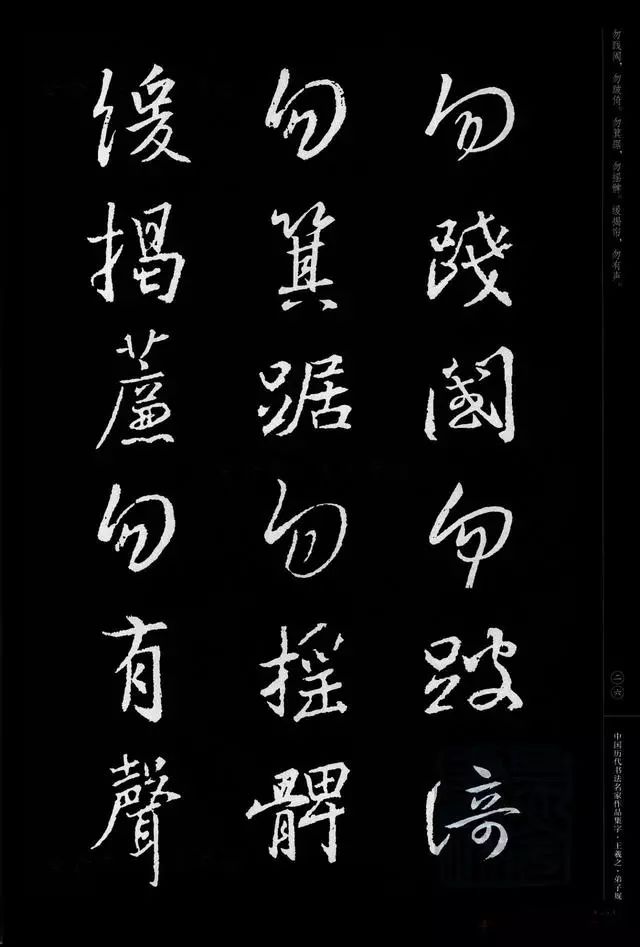 勿踐閾勿跛倚
勿箕踞勿摇髀
緩揭簾勿有聲
勿践阈，勿跛倚。勿箕踞，勿摇髀。缓揭帘，勿有声。
二六
中国历代书法名家作品集字·王羲之·弟子规